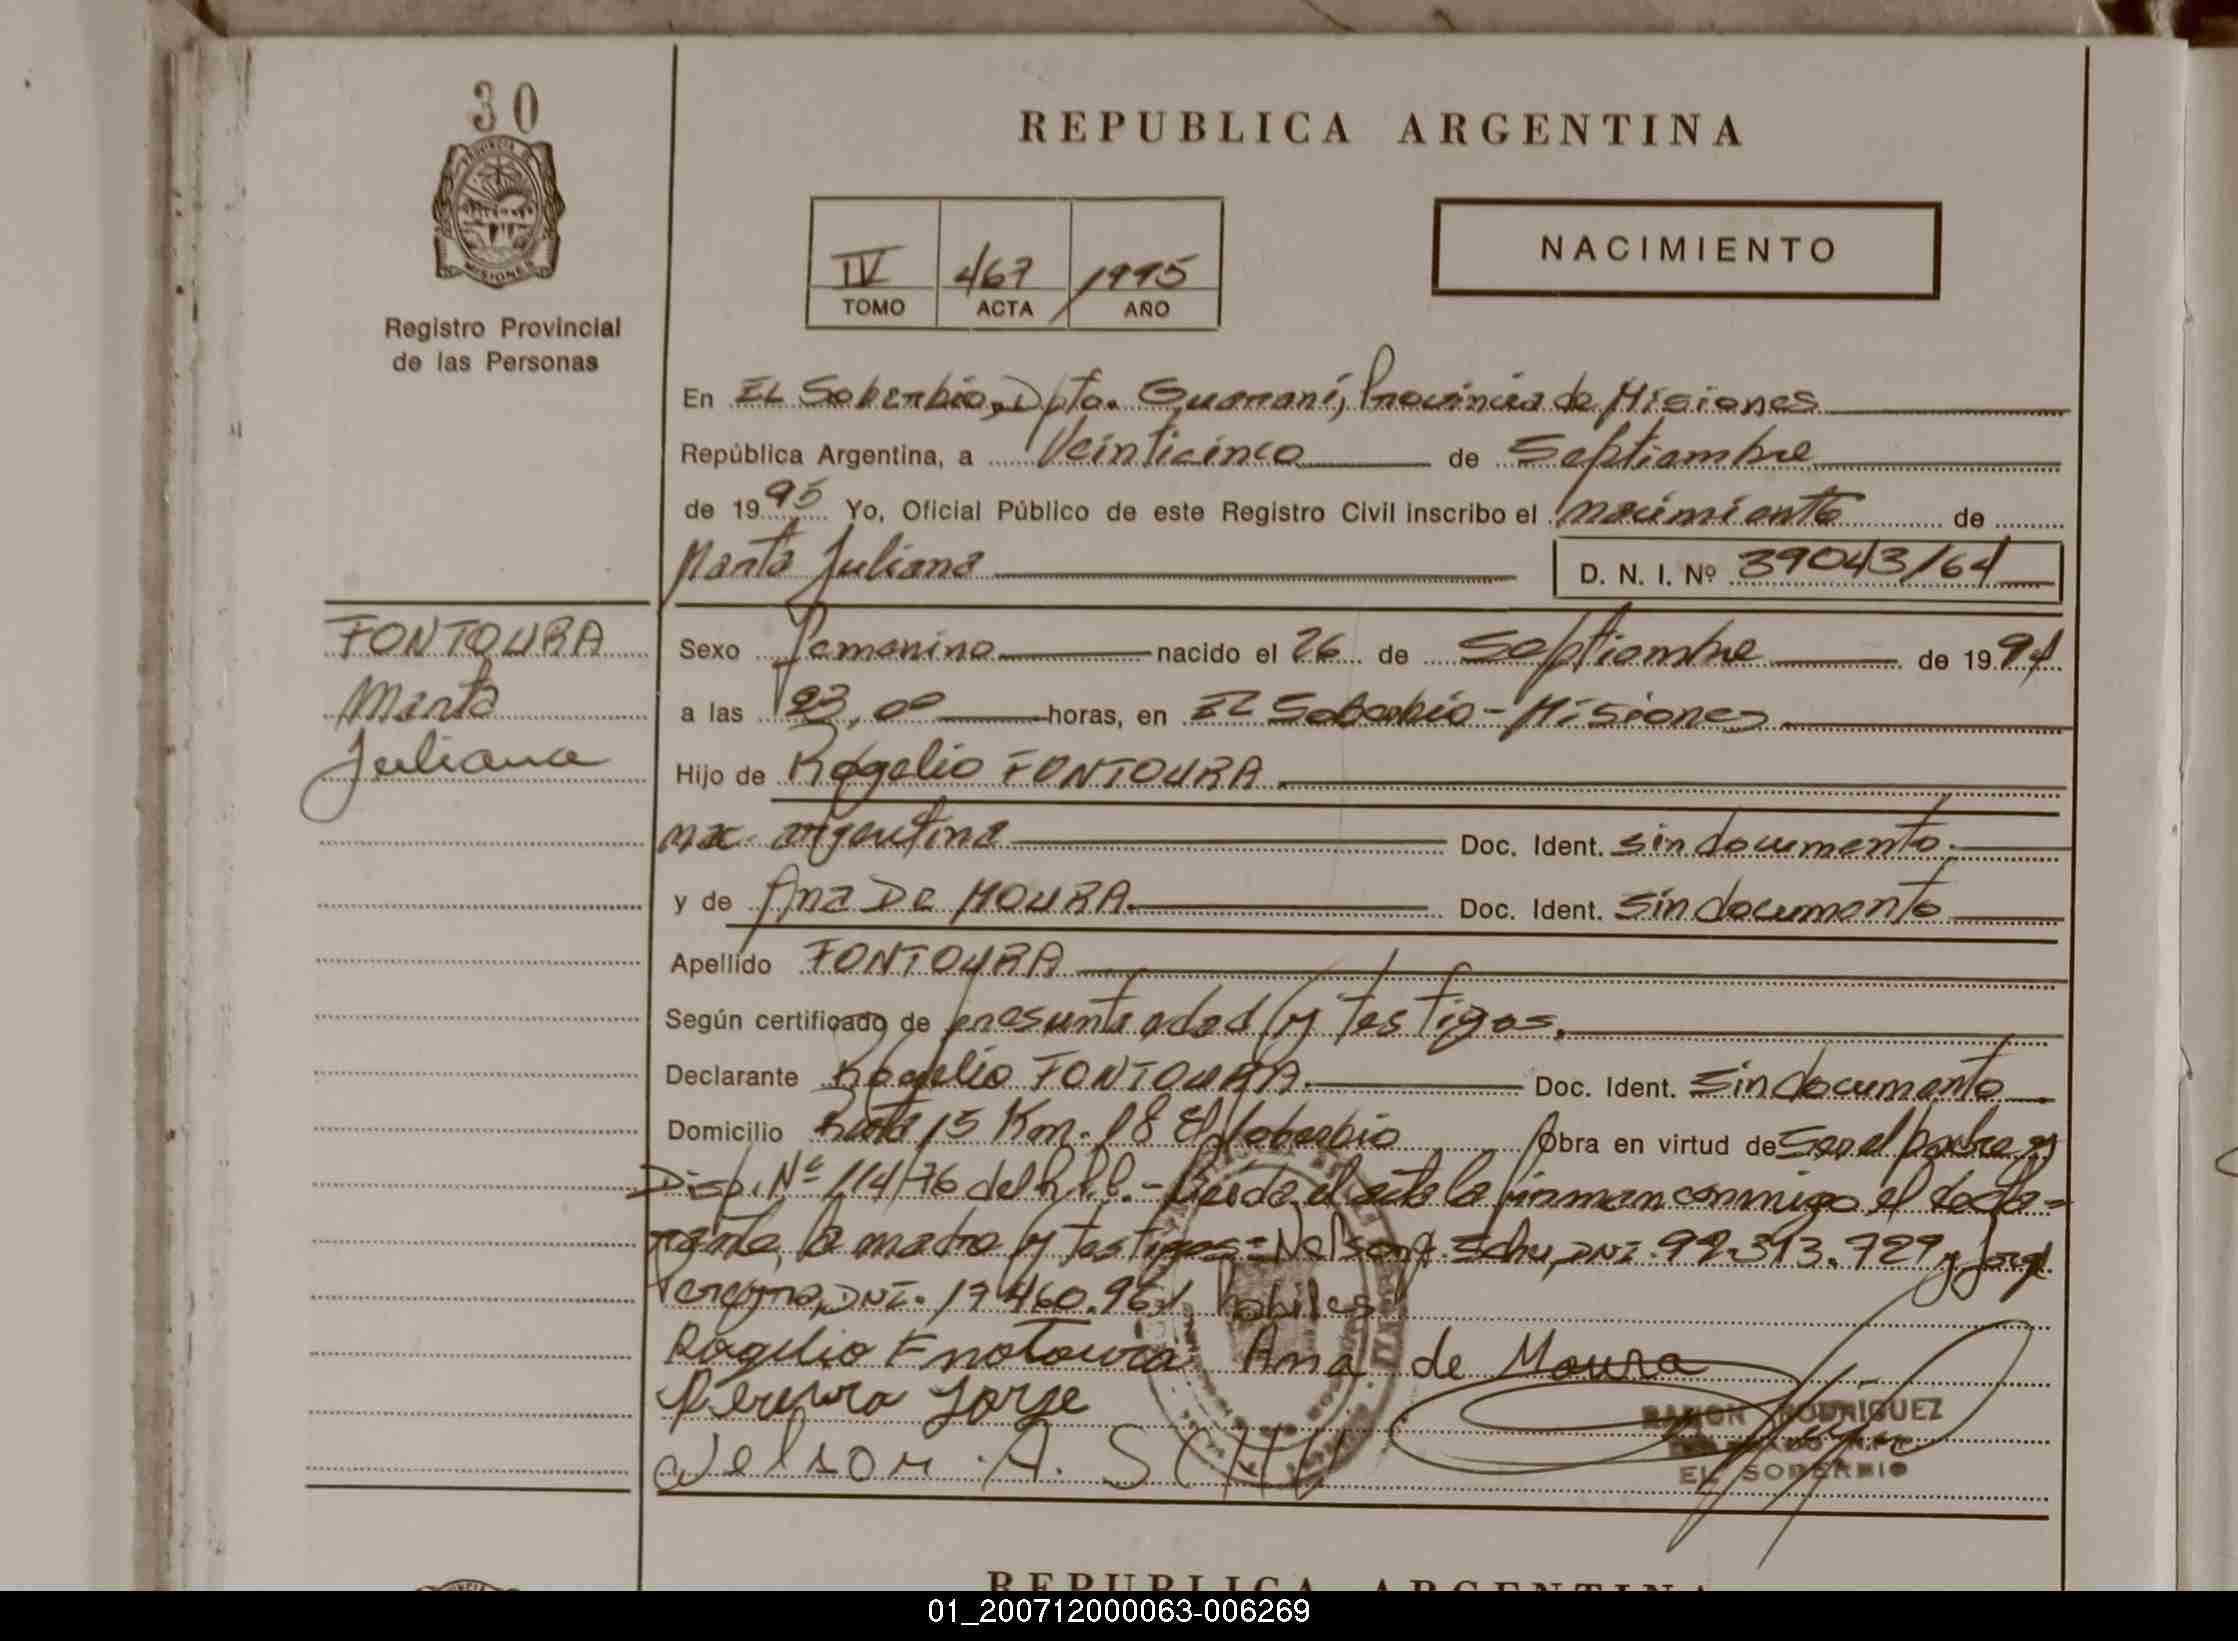 30
REPUBLICA ARGENTINA
PROVINCIA DE
MISIONES
Registro Provincial
de las Personas
IV 467 1995
TOMO ACTA AÑO
NACIMIENTO
En EL Soberbio, Dpto. Guaraní, Provincia de Misiones
República Argentina, a Veinticinco de Septiembre
de 1995 Yo, Oficial Público de este Registro Civil inscribo el nacimiento de
Marta Juliana D. N. I. Nº
FONTOURA
Marta
Juliana
Sexo femenino nacido el 26 de Septiembre de 199
a las 23,00 horas, en El Soberbio - Misiones
Hijo de Rogelio FONTOURA.
nac. argentina Doc. Ident. sin documento.
y de Ana De MOURA. Doc. Ident. sin documento
Apellido FONTOURA
Según certificado de presunta edad y testigos.
Declarante Rogelio FONTOURA. Doc. Ident. sin documento
Domicilio Ruta 15 Km. 18 El Soberbio Obra en virtud de ser el padre y
Disp. Nº 114/76 del R.P.P. - Leída el acta la firman conmigo el decla-
rante, la madre y testigos = Nelson A. Schu, DNI. 92.313.729 y Jorge
Pereyra, DNI. 17.460.961, hábiles
Rogelio Fnotoura Ana de Moura
Pereyra Jorge
Nelson A. SCHU
RAMON RODRIGUEZ
EL SOBERBIO
REPUBLICA ARGENTINA
01_200712000063-006269